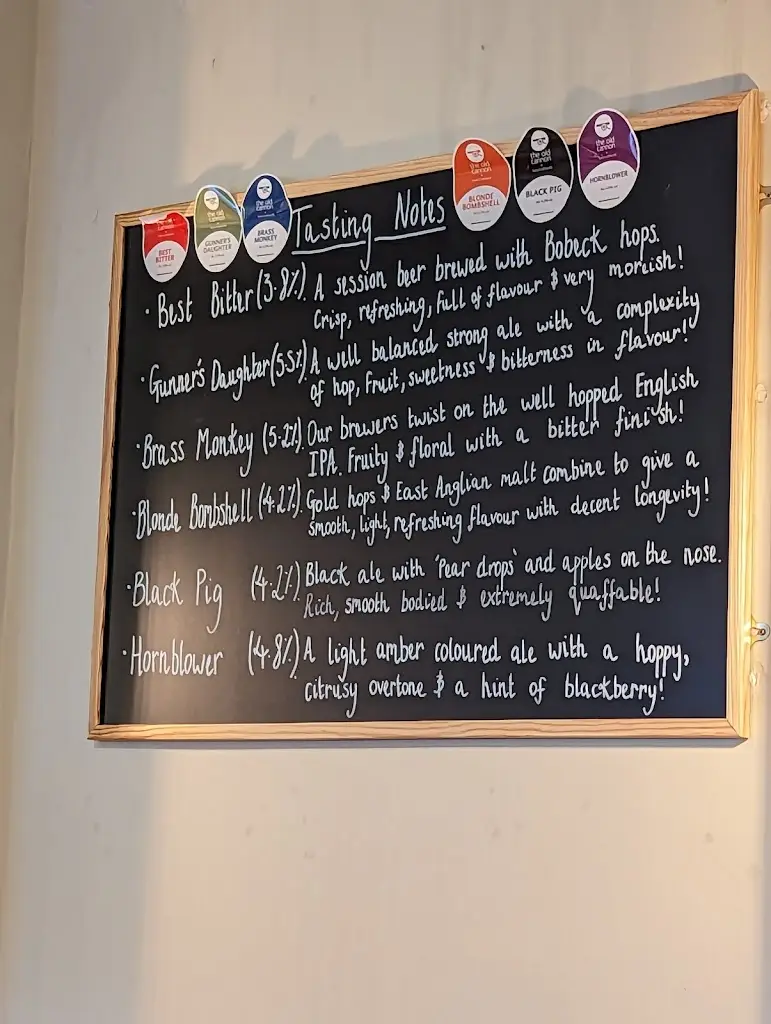 the old cannon
BEST BITTER
the old cannon
GUNNER'S DAUGHTER
the old cannon
BRASS MONKEY
Tasting Notes
the old cannon
BLONDE BOMBSHELL
the old cannon
BLACK PIG
the old cannon
HORNBLOWER
· Best Bitter (3.8%). A session beer brewed with Bobeck hops.
Crisp, refreshing, full of flavour & very moreish!
· Gunner's Daughter (5.5%). A well balanced strong ale with a complexity
of hop, fruit, sweetness & bitterness in flavour!
· Brass Monkey (5.2%). Our brewers twist on the well hopped English
IPA. Fruity & floral with a bitter finish!
· Blonde Bombshell (4.2%). Gold hops & East Anglian malt combine to give a
smooth, light, refreshing flavour with decent longevity!
· Black Pig (4.2%). Black ale with 'Pear drops' and apples on the nose.
Rich, smooth bodied & extremely quaffable!
· Hornblower (4.8%) A light amber coloured ale with a hoppy,
citrusy overtone & a hint of blackberry!